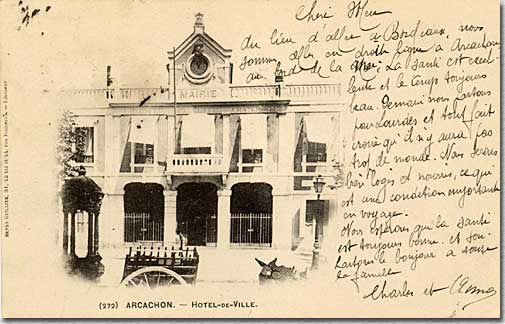 Chère
Au lieu d'aller de Bordeaux, nous
sommes allés en droite ligne à Arcachon
au bord de la mer. La santé est excel
lente et le temps toujours
beau. Demain nous partons
pour Lourdes et tout fait
croire qu'il n'y aura pas
trop de monde. Nous serons
bien logés et nourris, ce qui
est une condition importante
en voyage.
Nous espérons que la santé
est toujours bonne et sou
haitons le bonjour à toute
la famille
Charles et
MAIRIE
(272) ARCACHON. — HOTEL-DE-VILLE.
HENRY GUILLIER,